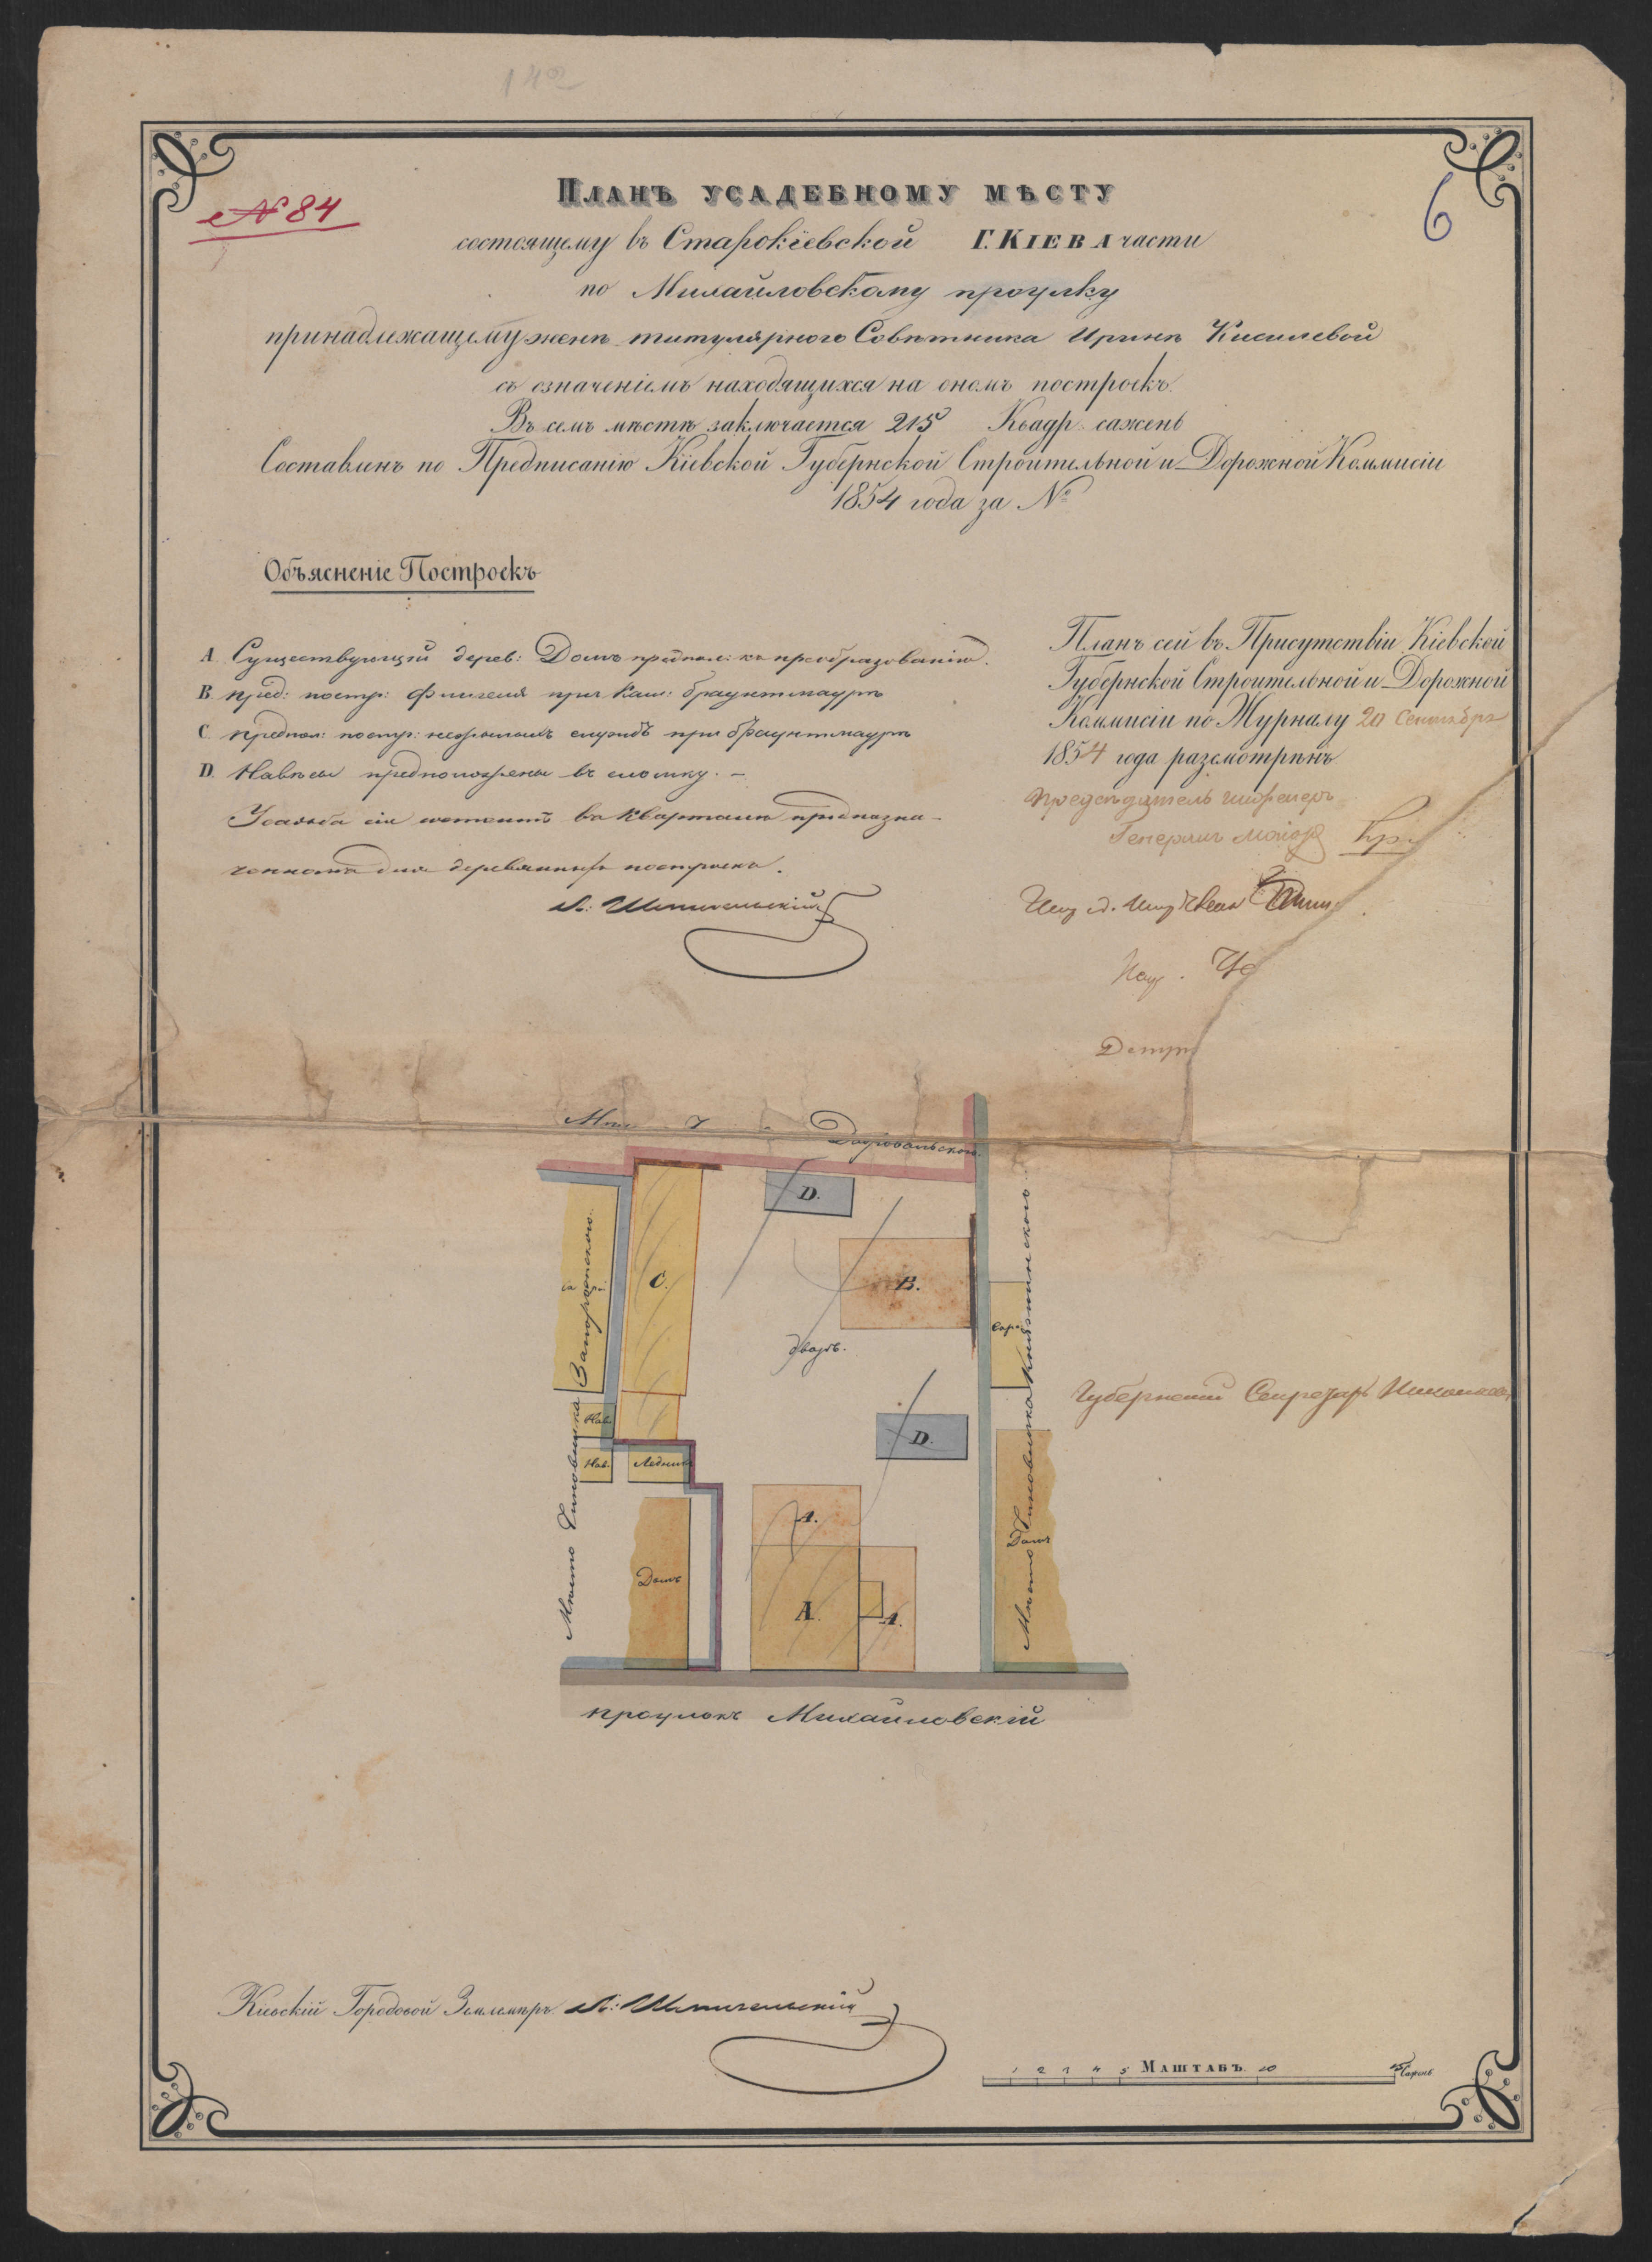 142
№ 84
6
Планъ усадебному мѣсту
состоящему въ Старокіевской Г. Кіева части
по Михайловскому проулку
принадлежащему женѣ титулярнаго Совѣтника Иринѣ Кисилевой
съ означеніемъ находящихся на ономъ построекъ.
Въ семъ мѣстѣ заключается 215 Квадр. сажень
Составленъ по Предписанію Кіевской Губернской Строительной и Дорожной Коммисіи
1854 года за №
Объясненіе Построекъ
A. Существующій дерев: Домъ предпол: къ преобразованію.
B. пред: постр: Флигеля при кам: брантмаурѣ
C. предпол: постр: нежилыхъ службъ при брантмаурѣ
D. Навѣсы предположены въ сломку. –
Усадьба сія состоитъ въ кварталѣ предназна-
ченномъ для деревянныхъ построекъ.
Планъ сей въ Присутствіи Кіевской
Губернской Строительной и Дорожной
Коммисіи по Журналу 20 Сентября
1854 года разсмотрѣнъ
Предсѣдатель инженеръ
Генералъ Маіоръ
Домбровольской.
D.
C.
B.
дворъ.
D.
A.
A.
A.
Нав.
Нав.
Ледникъ
Домъ
Домъ
Сарай
Мѣсто Чиновника Запорожскаго.
Мѣсто Чиновника
проулокъ Михайловскій
Губернскій Секретарь
Кіевскій Городовой Землемѣръ
1 2 3 4 5 Маштабъ. 10 15 Сажень